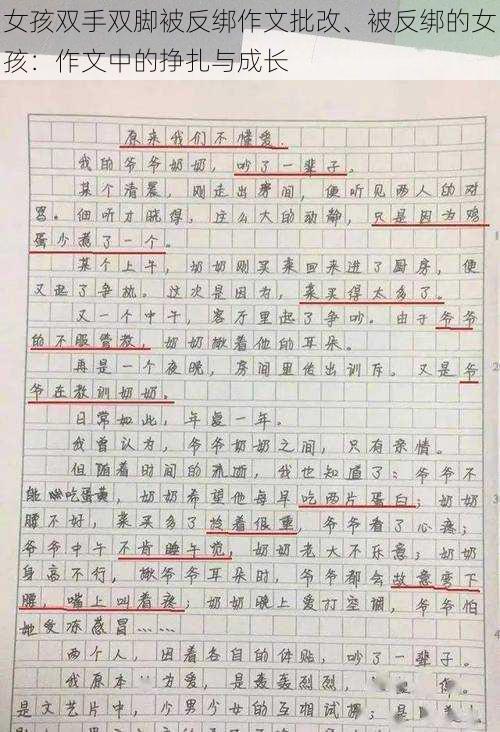 女孩双手双脚被反绑作文批改、被反绑的女
孩：作文中的挣扎与成长
原来我们不懂爱.
我的爷爷奶奶，吵了一辈子。
某个清晨，刚走出房间，便听见两人的对
骂。细听才晓得，这么大的动静，只是因为鸡
蛋少煮了一个。
某个上午，奶奶刚买菜回来进了厨房，便
又起了争执。这次是因为，菜买得太多了。
又一个中午，客厅里起了争吵。由于爷爷
的不服管教，奶奶揪着他的耳朵。
再是一个夜晚，房间里传出训斥。又是爷
爷在教训奶奶。
日常如此，年复一年。
我曾认为，爷爷奶奶之间，只有亲情。
但随着时间的流逝，我也知道了：爷爷不
能吃蛋黄，奶奶希望他每早吃两片蛋白；奶奶
腰不好，菜买多了拎着很重，爷爷看了心疼；
爷爷中午不肯睡午觉，奶奶老大不乐意；奶奶
身高不行，揪爷爷耳朵时，爷爷都会故意弯下
腰，嘴上叫着疼；奶奶晚上爱打空调，爷爷怕
她受冻感冒……
两个人，因着各自的体贴，吵了一辈子。
我原本 为爱，是轰轰烈烈，
是文艺片中，少男少女的互相试探；是